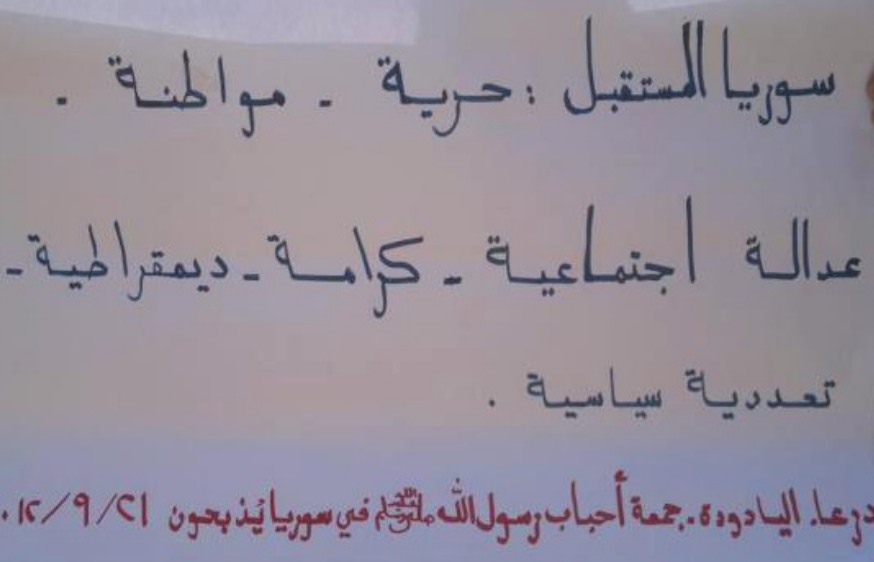 سوريا المستقبل : حرية - مواطنة .
عدالة اجتماعية - كرامة - ديمقراطية -
تعددية سياسية .
درعا. اليادودة. جمعة أحباب رسول الله ﷺ في سوريا يُذبحون ٢٠١٢/٩/٢١